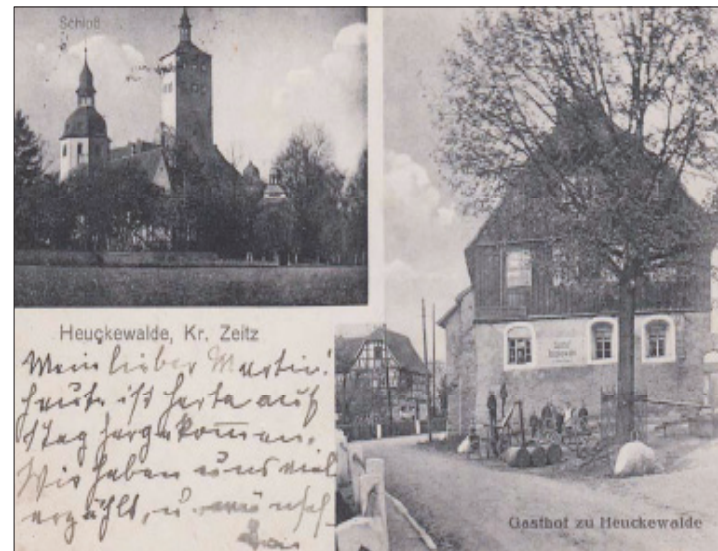 Schloß
Heuckewalde, Kr. Zeitz
Mein lieber Martin!
heute ist Herta auf
1 Tag hergekommen.
Wir haben uns viel
erzählt, u.
Gasthof zu Heuckewalde